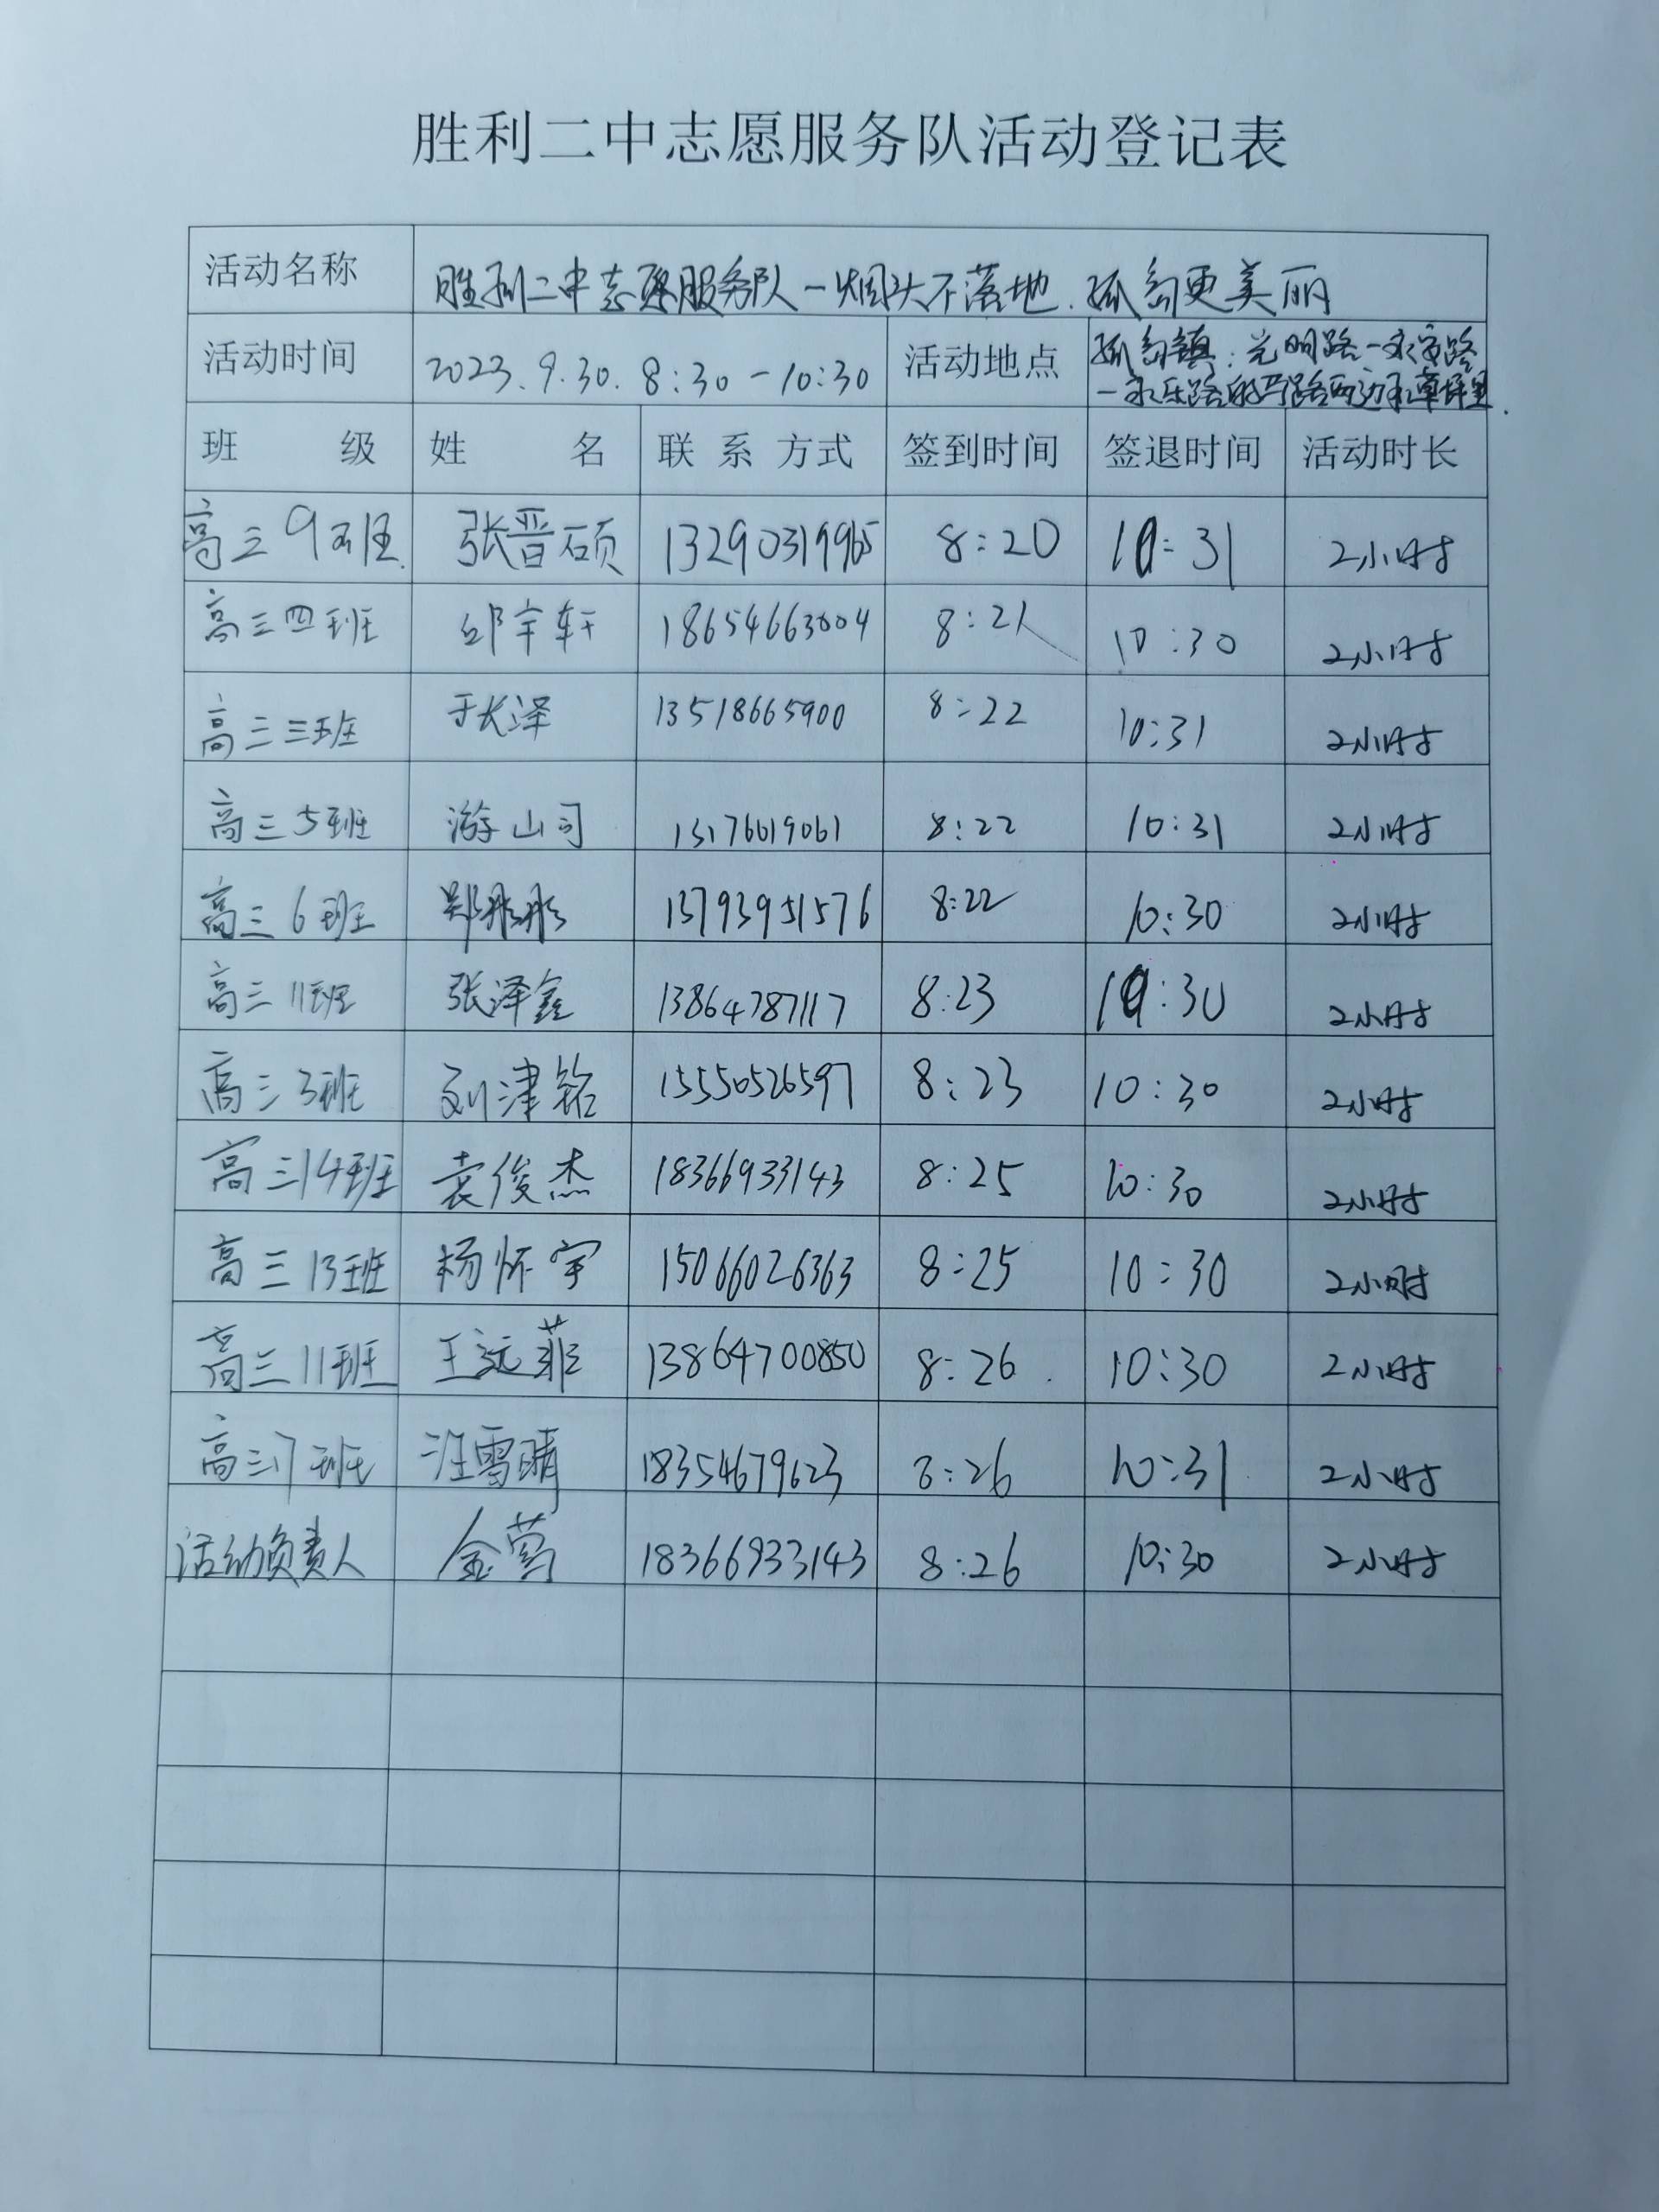 胜利二中志愿服务队活动登记表
活动名称 胜利二中志愿服务队-烟头不落地.孤岛更美丽
活动时间 2023.9.30. 8:30-10:30 活动地点 孤岛镇:光明路-永安路
-永乐路的马路两边和草坪里.
班 级 姓 名 联系方式 签到时间 签退时间 活动时长
高三9班. 张晋硕 13290319965 8:20 10:31 2小时
高三四班 邱宇轩 18654663004 8:21 10:30 2小时
高三三班 于长泽 13518665900 8:22 10:31 2小时
高三5班 游山司 13176619061 8:22 10:31 2小时
高三6班 郑彤彤 13793951576 8:22 10:30 2小时
高三11班 张泽鑫 13864787117 8:23 10:30 2小时
高三3班 刘津铭 15550526597 8:23 10:30 2小时
高三14班 袁俊杰 18366933143 8:25 10:30 2小时
高三13班 杨怀宇 15066026363 8:25 10:30 2小时
高三11班 王远菲 13864700850 8:26. 10:30 2小时
高三7班 汪雪晴 18354679623 8:26 10:31 2小时
活动负责人 金莺 18366933143 8:26 10:30 2小时